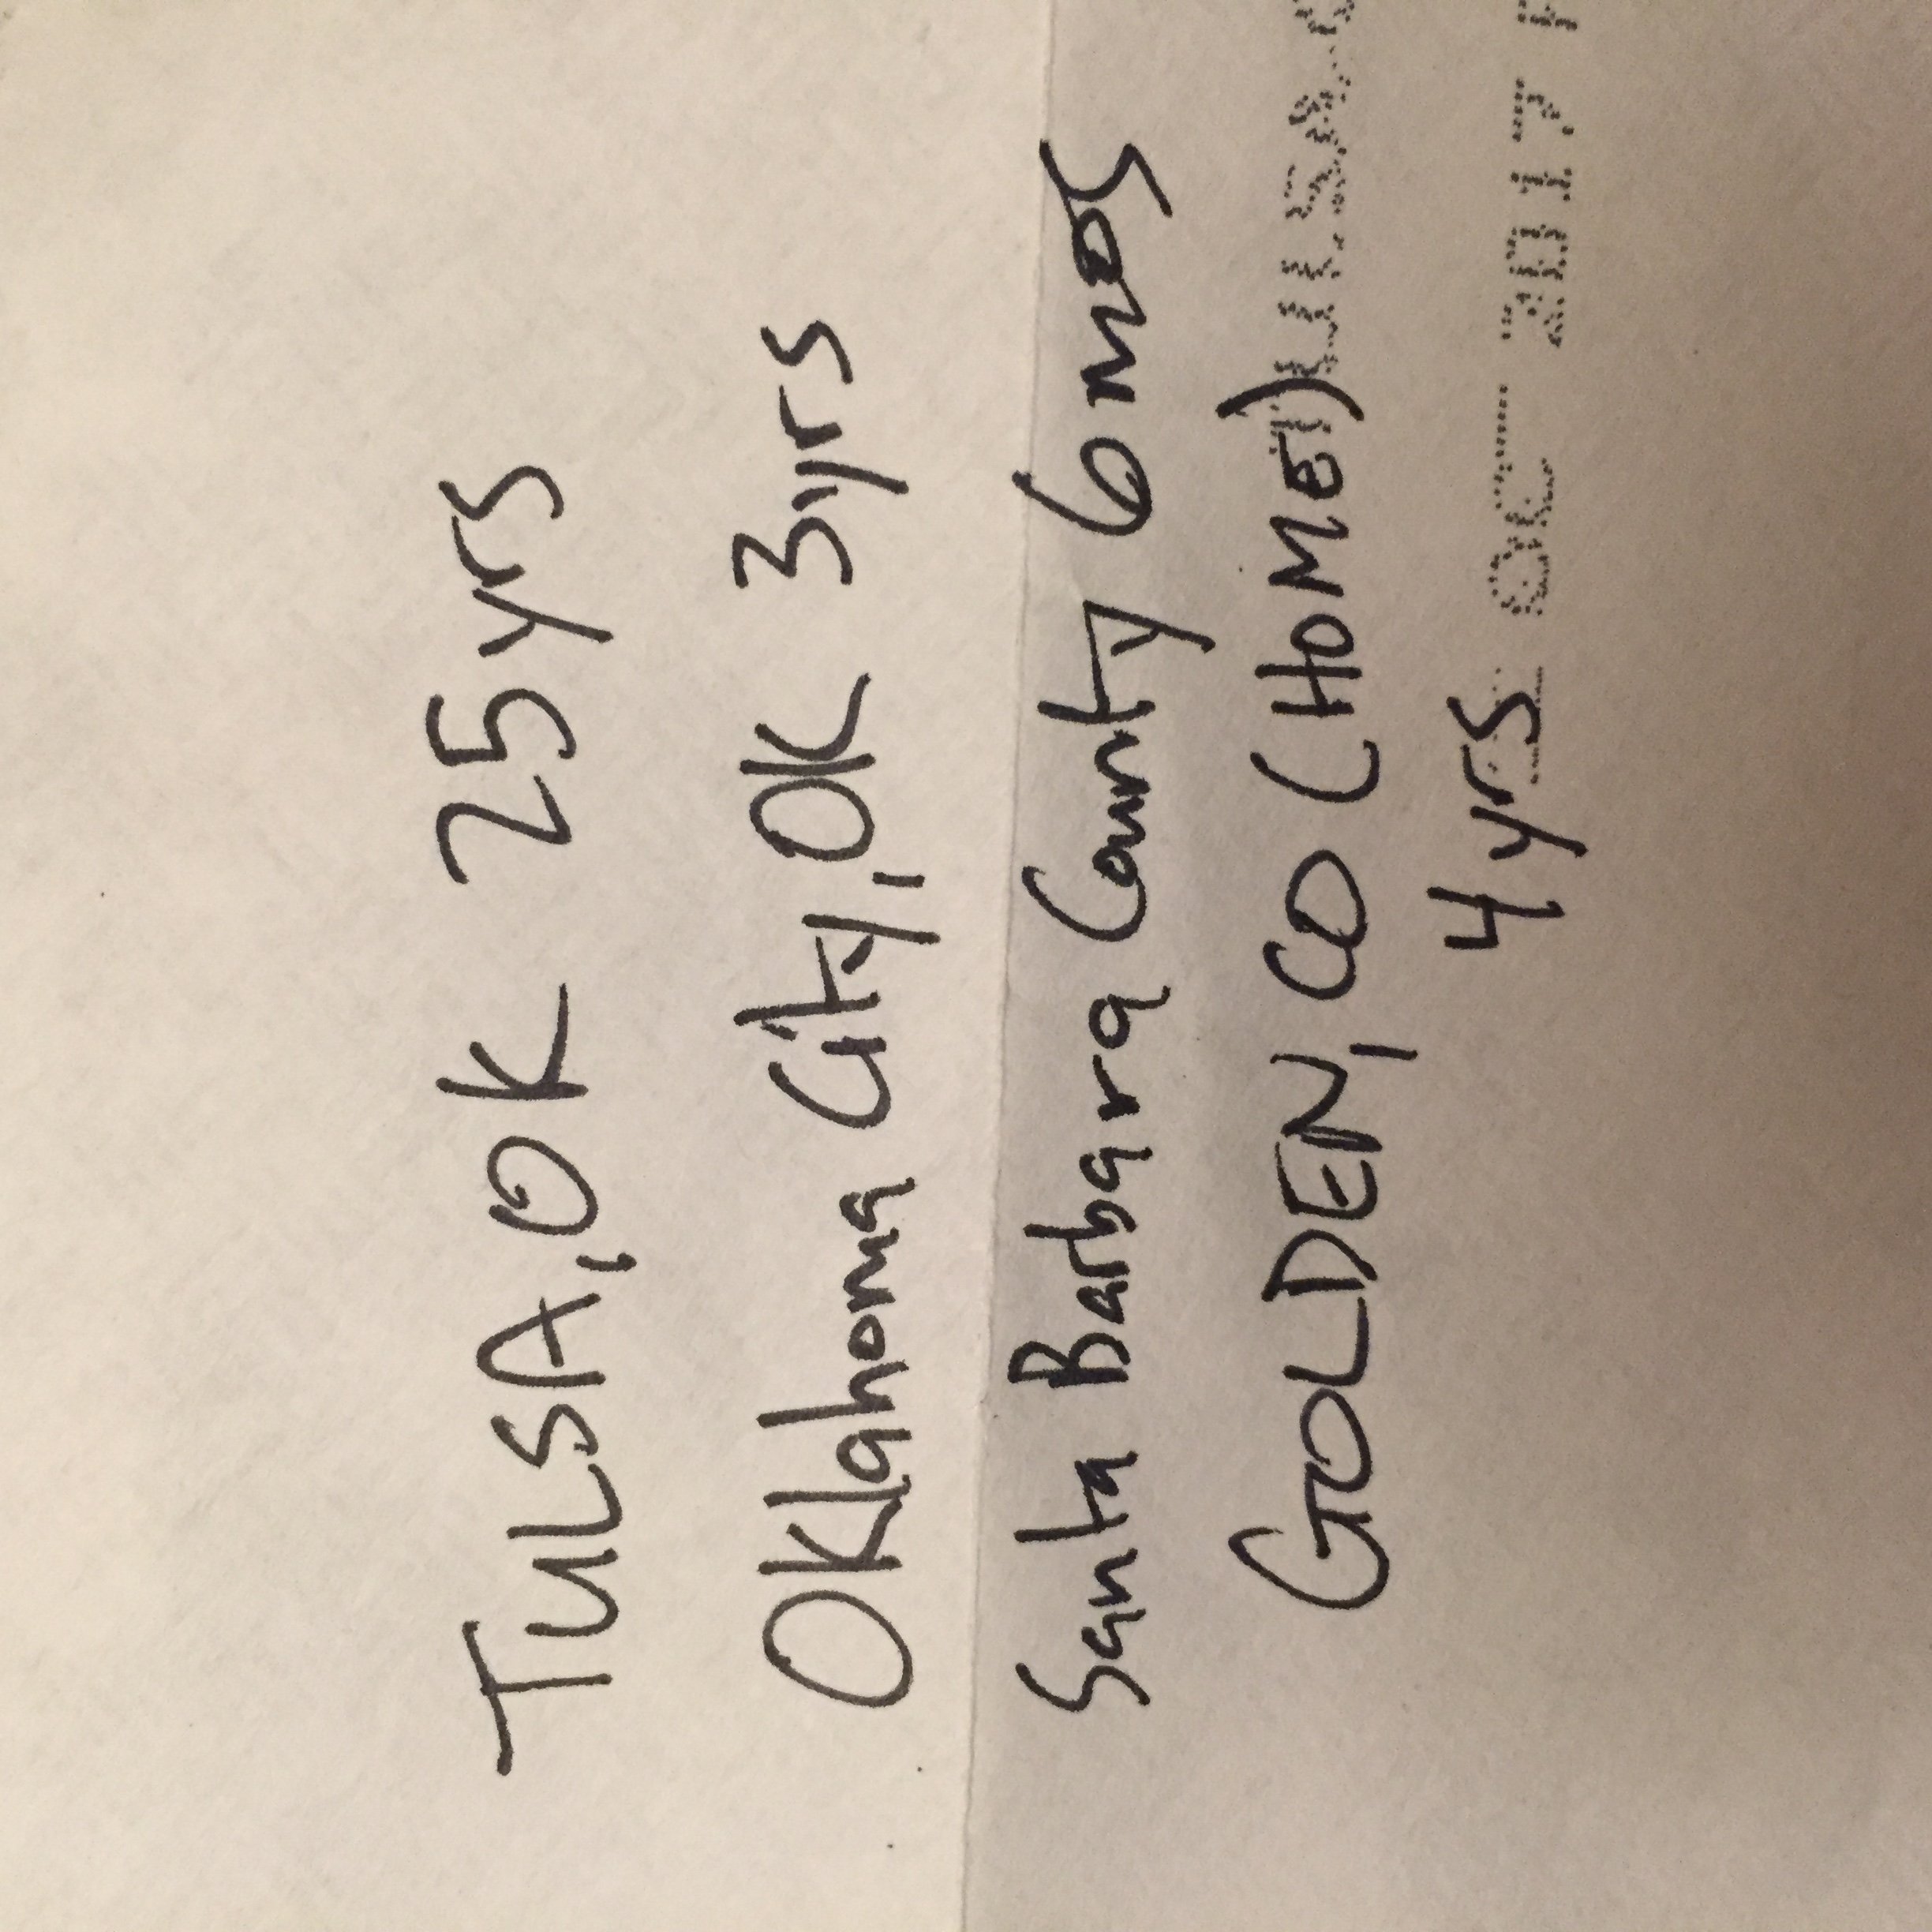 TULSA, OK 25yrs
Oklahoma City, OK 3yrs
Santa Barbara County 6mos
GOLDEN, CO (HOME)
TULSA
4yrs
OCT 2017